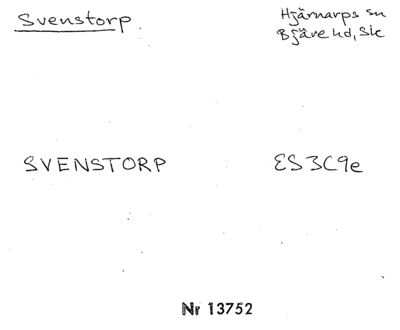 Svenstorp
Hjärnarps sn
Bjäre hd, Sk
SVENSTORP ES3C9e
Nr 13752